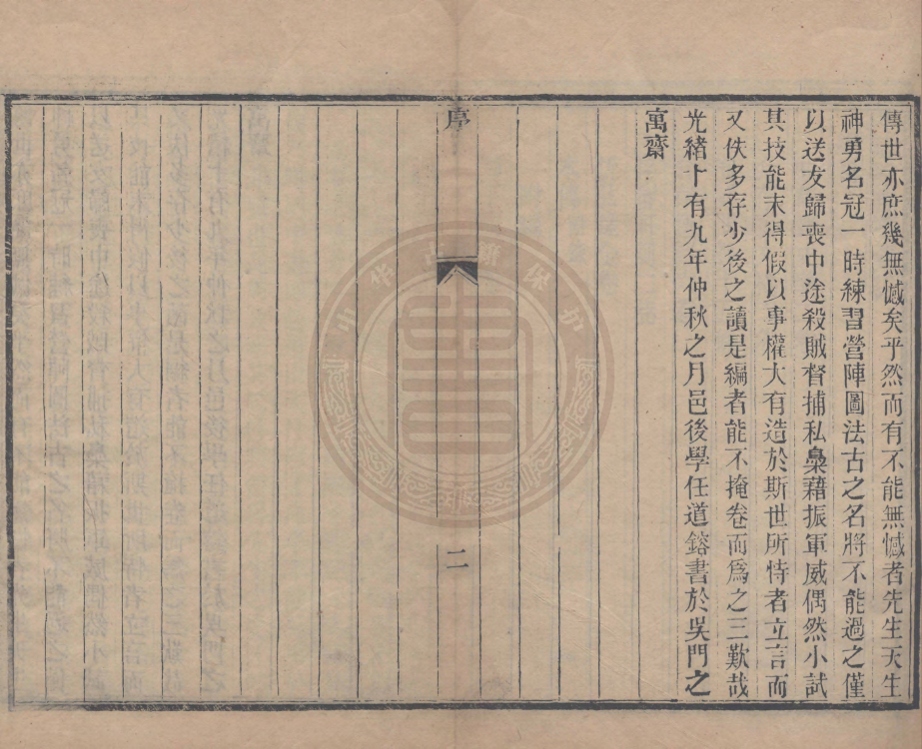 傳世亦庶幾無憾矣乎然而有不能無憾者先生天生
神勇名冠一時練習營陣圖法古之名將不能過之僅
以送友歸喪中途殺賊督捕私梟藉振軍威偶然小試
其技能未得假以事權大有造於斯世所恃者立言而
又佚多存少後之讀是編者能不掩卷而爲之三歎哉
光緒十有九年仲秋之月邑後學任道鎔書於吳門之
寓齋
序
二